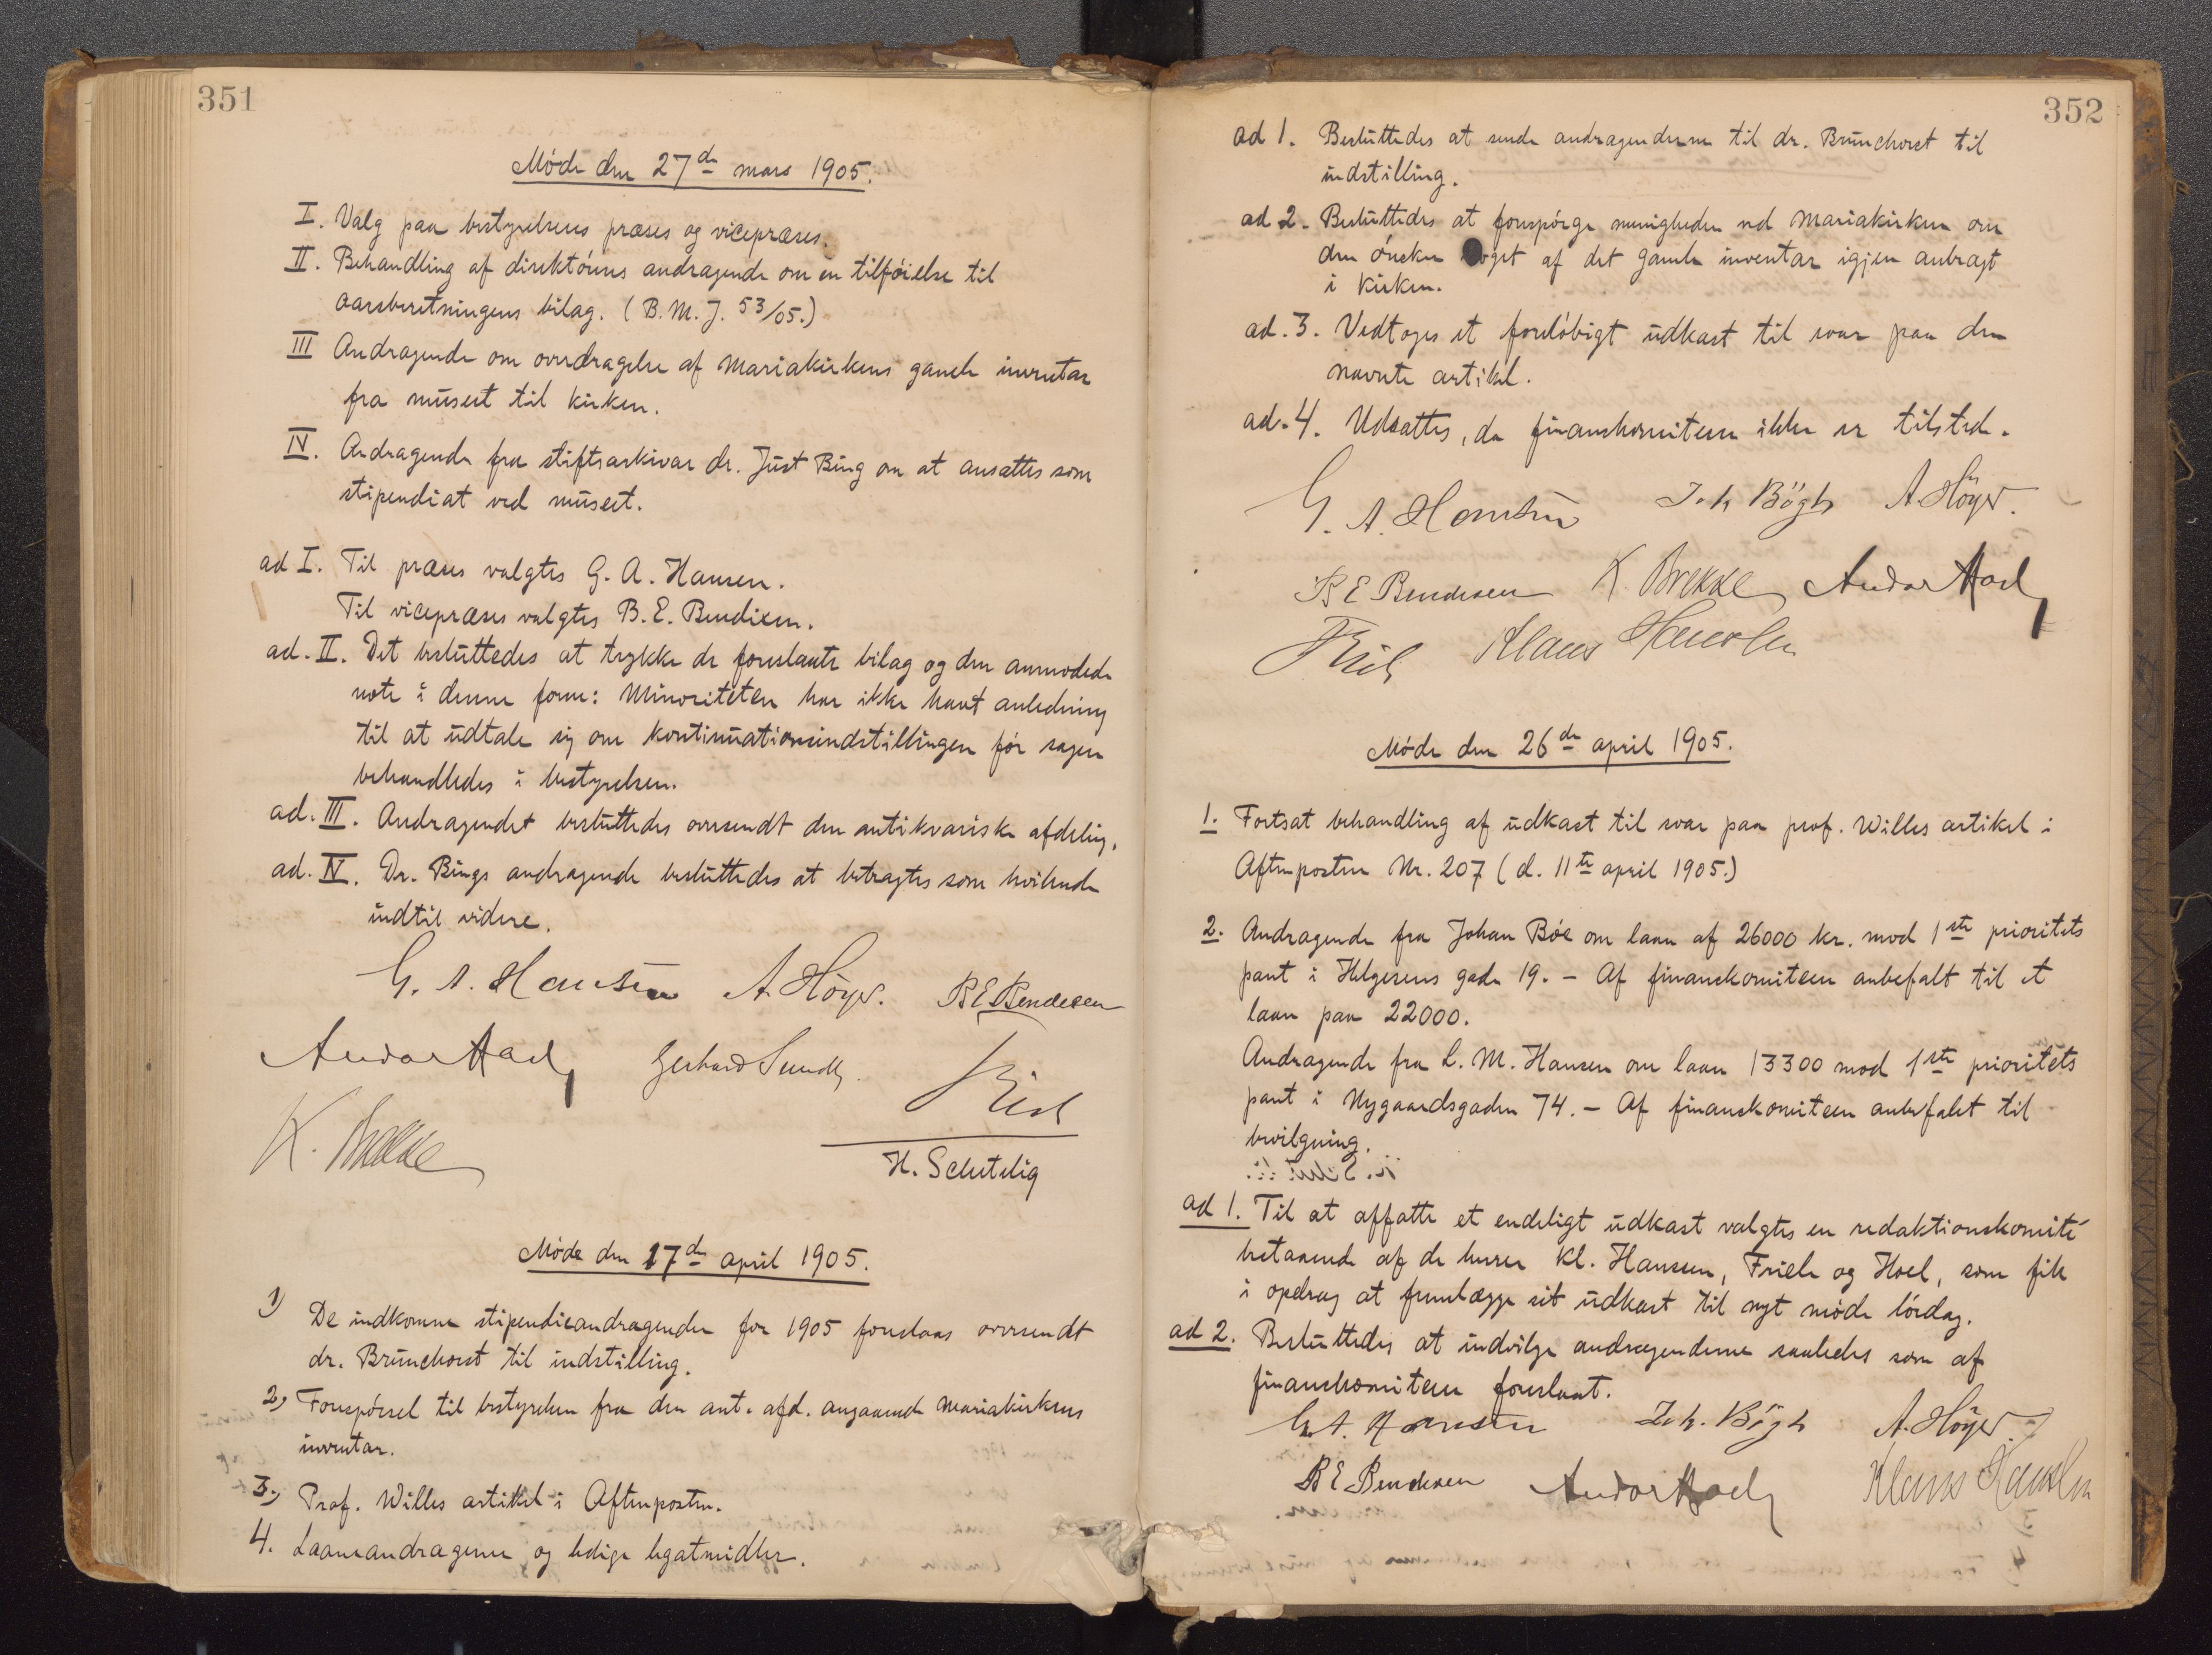 351
Møde den 27de mars 1905.
I. Valg paa bestyrelsens præses og vicepræses.
II. Behandling af direktørens andragende om en tilføielse til
aarsberetningens bilag. (B. M. J. 53/05.)
III Andragende om overdragelse af Mariakirkens gamle inventar
fra museet til kirken.
IV. Andragende fra stiftsarkivar dr. Just Bing om at ansættes som
stipendiat ved museet.
ad I. Til præses valgtes G. A. Hansen.
Til vicepræses valgtes B. E. Bendixen.
ad. II. Det besluttedes at trykke de foreslaatte bilag og den anmodede
note i denne form: Minoriteten har ikke havt anledning
til at udtale sig om kontinuationsindstillingen før sagen
behandledes i bestyrelsen.
ad. III. Andragendet besluttedes oversendt den antikvariske afdeling.
ad. IV. Dr. Bings andragende besluttedes at betragtes som hvilende
indtil videre.
G. A. Hansen A. Høyer. B E Bendixen
Andor Hoel Gerhard Sundt Friele
K. Brekke
H. Schetelig
Møde den 17de april 1905.
1) De indkomne stipendieandragender for 1905 foreslaas oversendt
dr. Brunchorst til indstilling.
2) Forespørsel til bestyrelsen fra den ant. afd. angaaende Mariakirkens
inventar.
3.) Prof. Willes artikel i Aftenposten.
4. Laaneandragener og ledige legatmidler.
352
ad 1. Besluttedes at sende andragenderne til dr. Brunchorst til
indstilling.
ad 2. Besluttedes at forespørge menigheden ved Mariakirken om
den ønsker noget af det gamle inventar igjen anbragt
i kirken.
ad. 3. Vedtoges et foreløbigt udkast til svar paa den
nævnte artikel.
ad. 4. Udsattes, da finanskomiteen ikke er tilstede.
G. A. Hansen Joh Bøgh A. Høyer.
B E Bendixen K. Brekke Andor Hoel
Friele Klaus Hanssen
Møde den 26de april 1905.
1. Fortsat behandling af udkast til svar paa prof. Willes artikel i
Aftenposten Nr. 207 (d. 11te april 1905.)
2. Andragende fra Johan Bøe om laan af 26000 kr. mod 1ste prioritets
pant i Helgesens gade 19. – Af finanskomiteen anbefalt til et
laan paa 22000.
Andragende fra L. M. Hansen om laan 13300 mod 1ste prioritets
pant i Nygaardsgaden 74. – Af finanskomiteen anbefalet til
bevilgning.
ad 1. Til at affatte et endeligt udkast valgtes en redaktionskomité
bestaaende af de herrer Kl. Hanssen, Friele og Hoel, som fik
i opdrag at fremlægge sit udkast til nyt møde lørdag.
ad 2. Besluttedes at indvilge andragenderne saaledes som af
finanskomiteen foreslaat.
G. A. Hansen Joh. Bøgh A. Høyer.
B E Bendixen Andor Hoel Klaus Hanssen